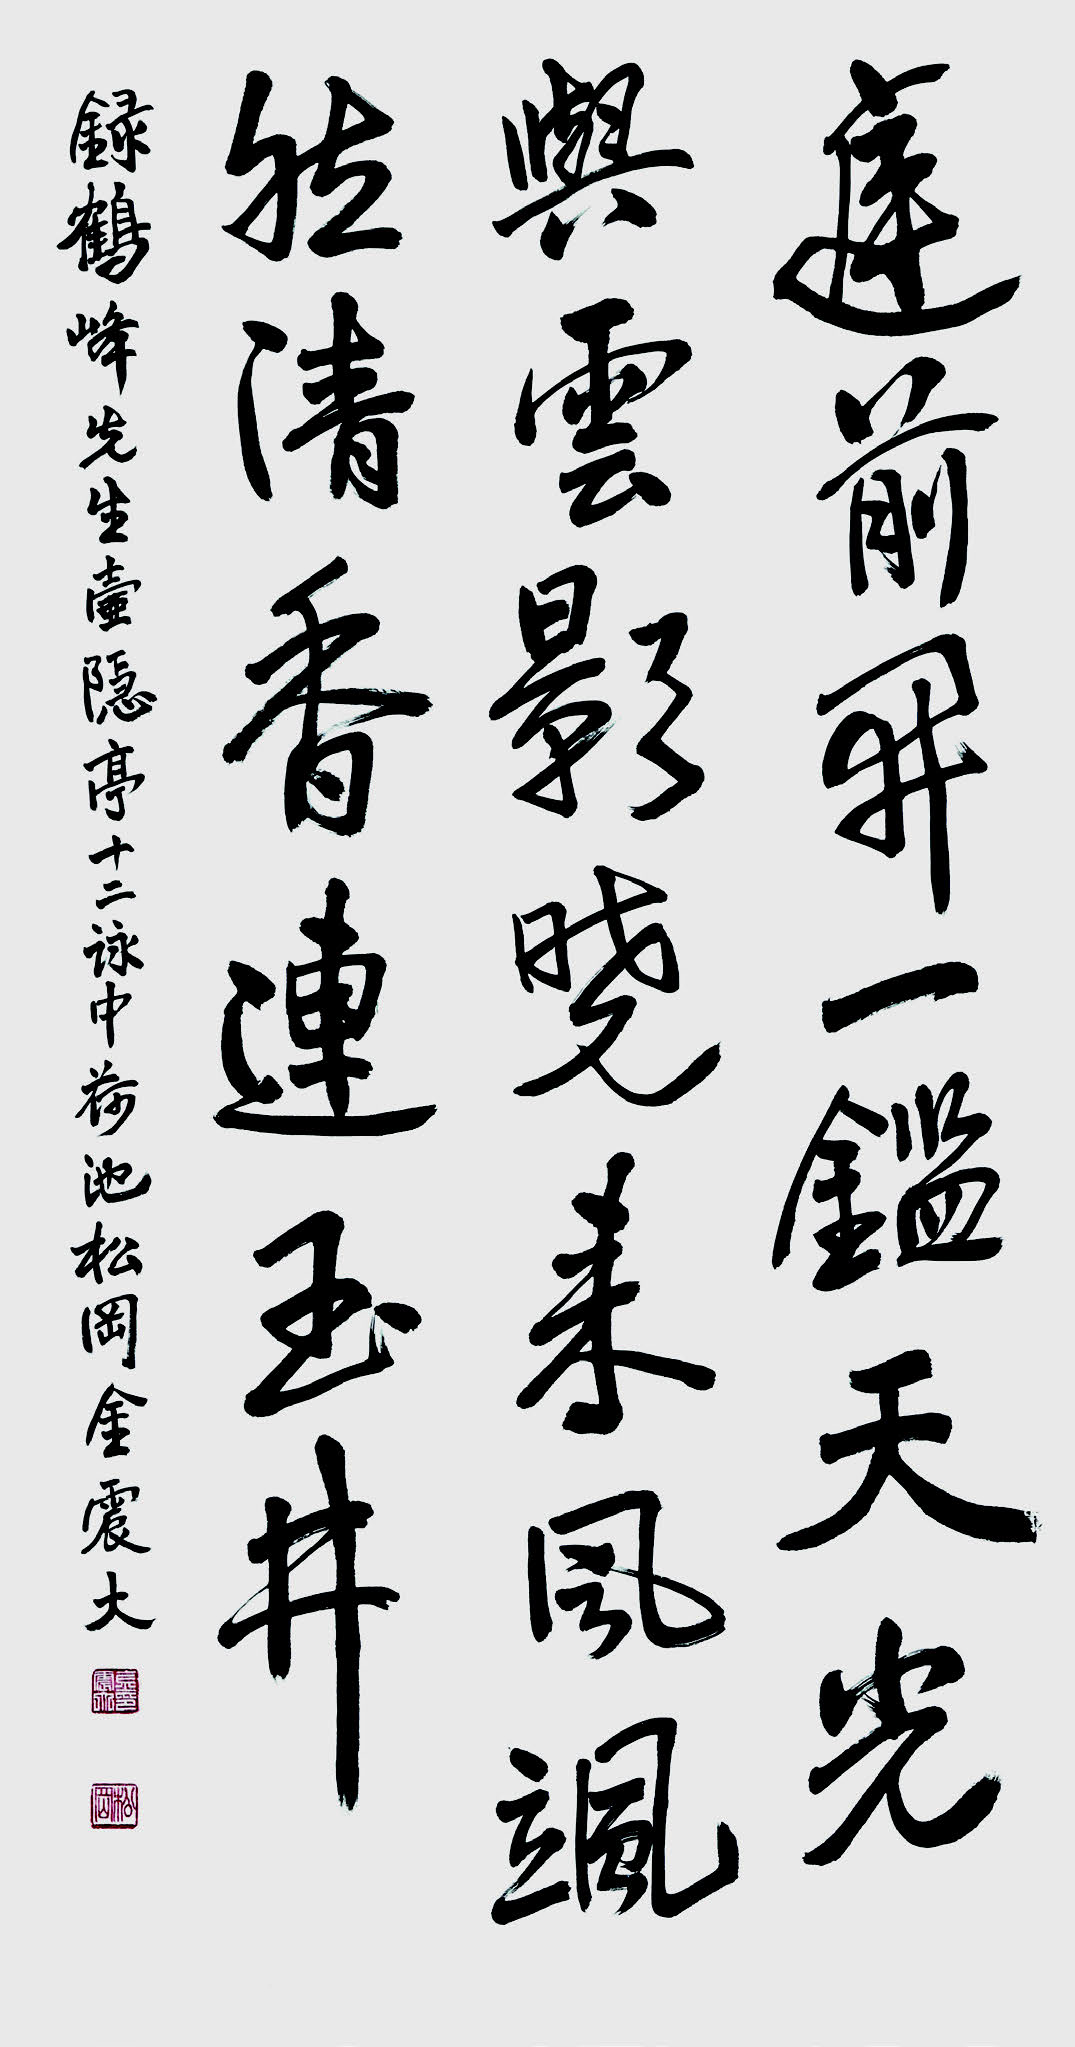 庭前開一鑑天光
與雲影曉來風颯
然清香連玉井
録鶴峰先生壺隠亭十二詠中荷池松岡金震大
松岡